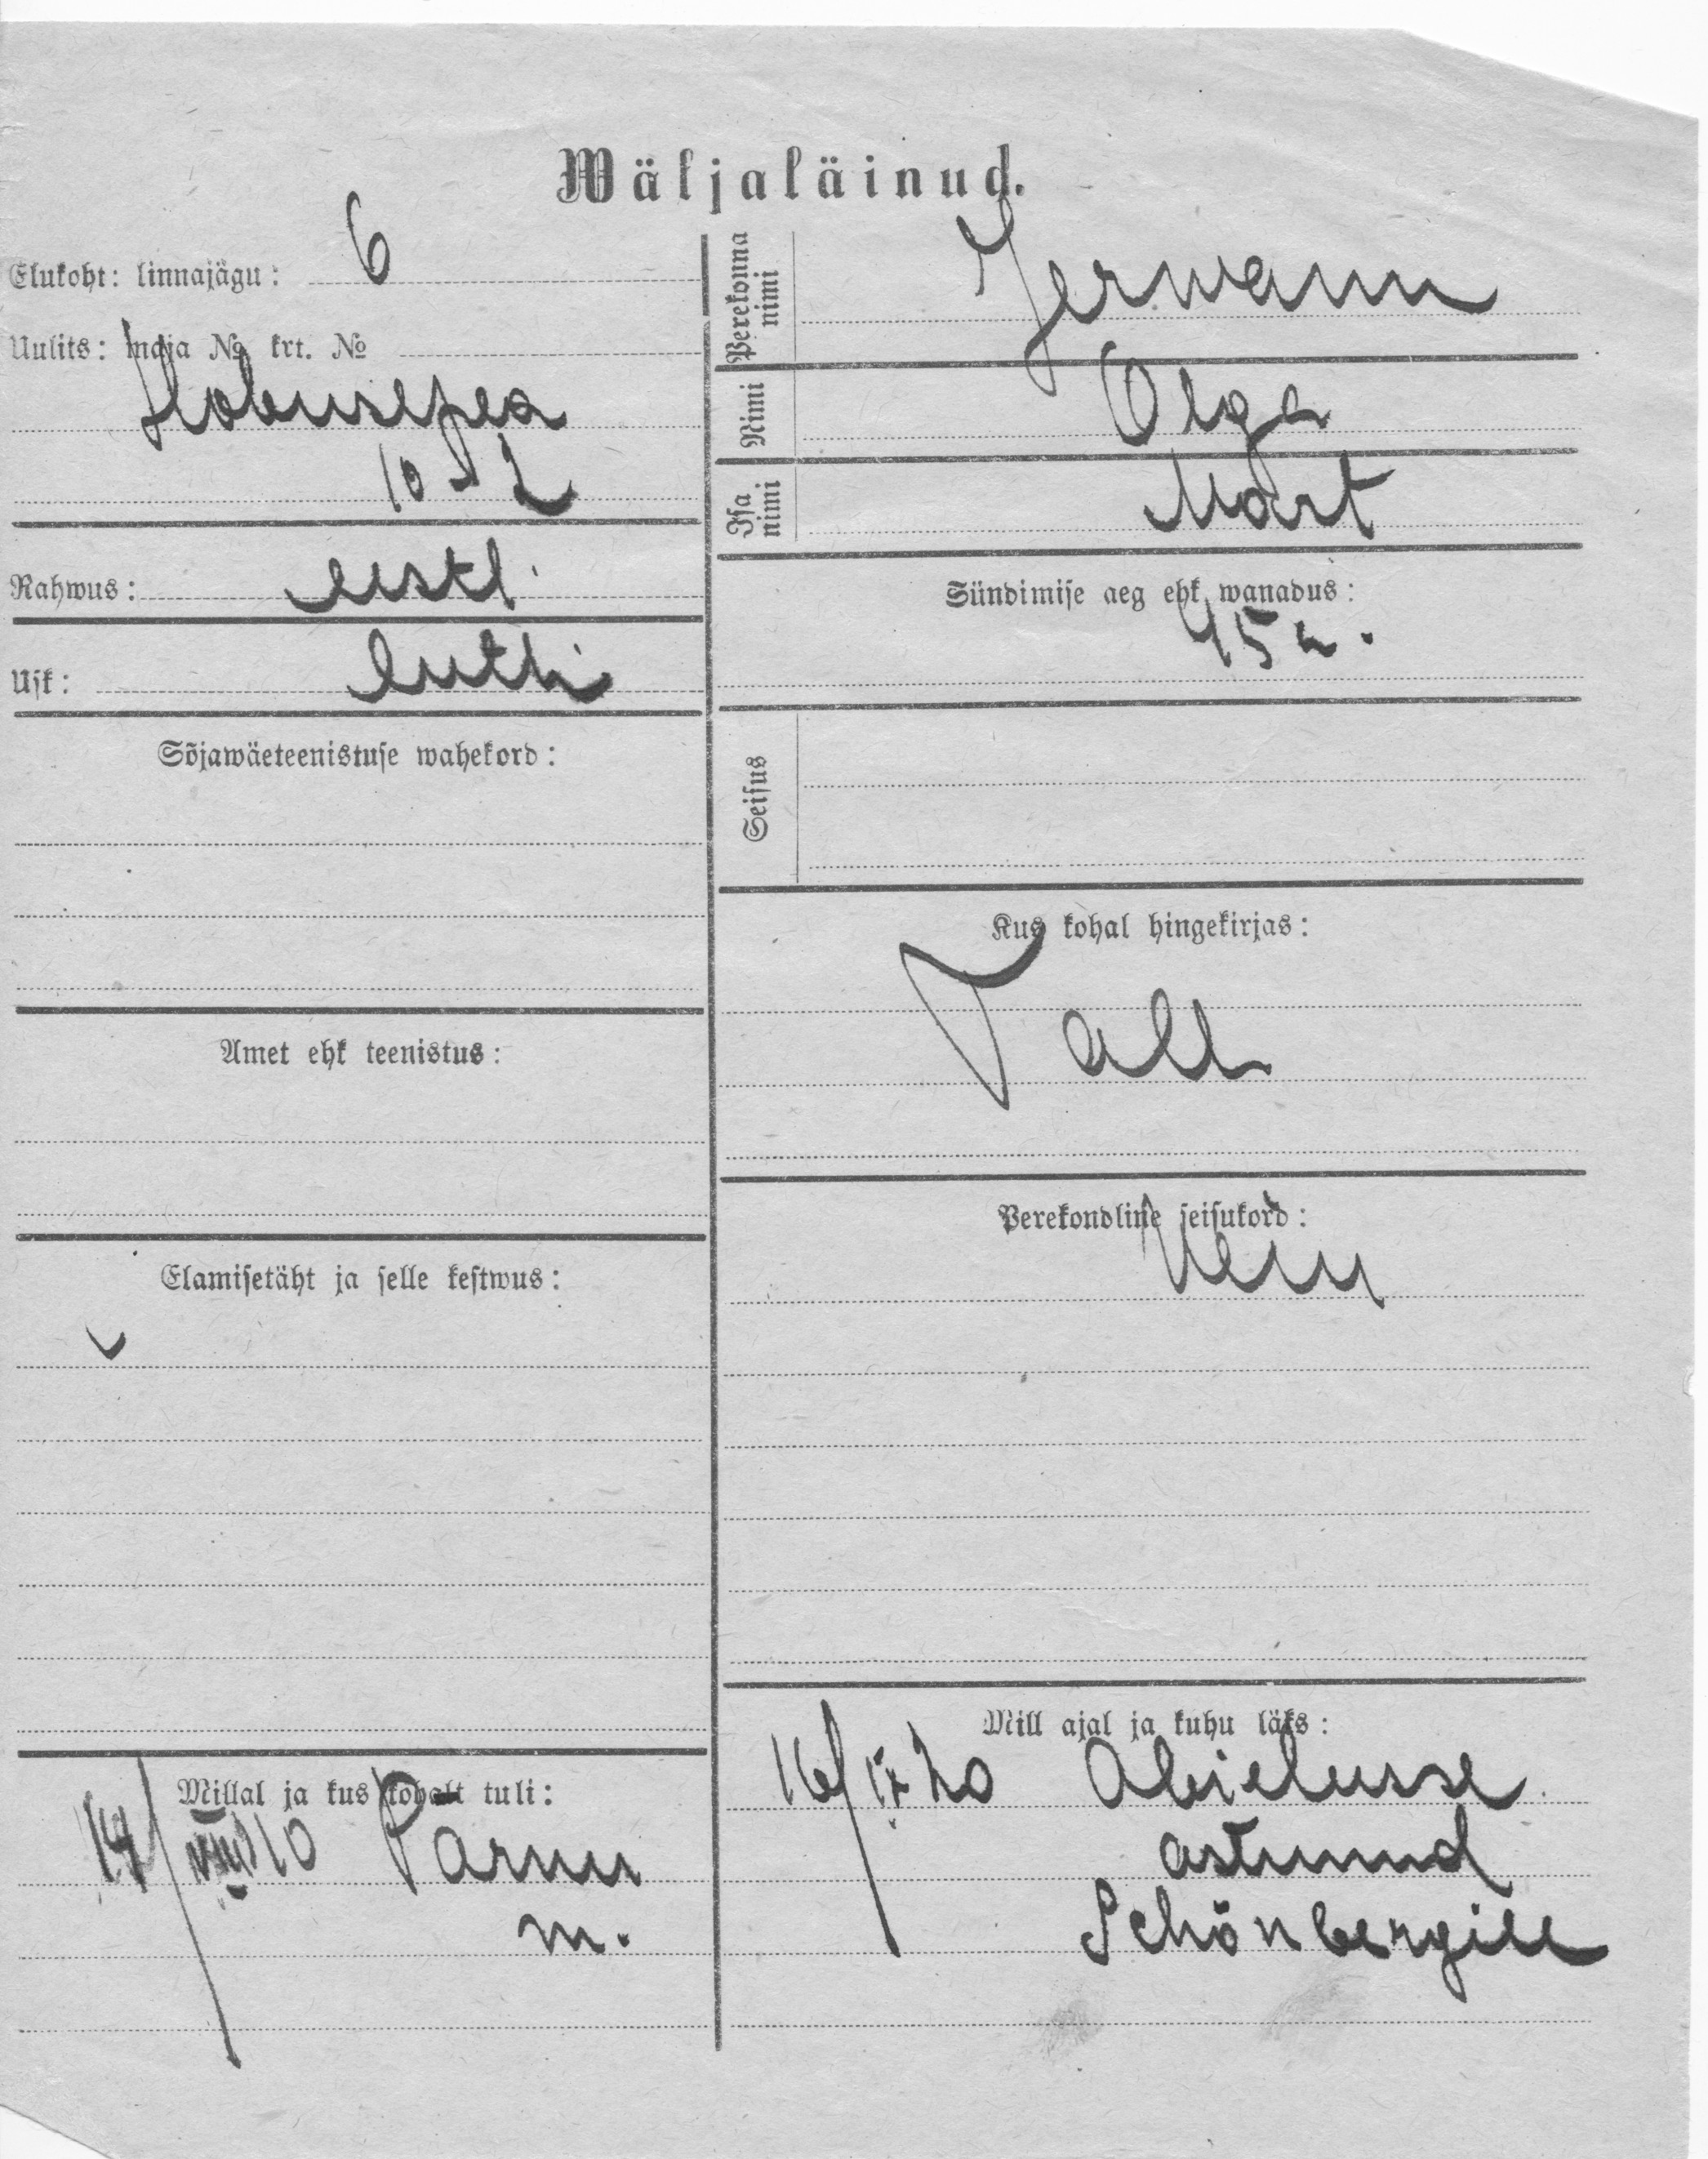 Wäljaläinud.
Elukoht: linnajägu: 6
Uulits: maja № krt. №
Hobusepea
10 - 2
Rahwus: eestl.
Usk: luth.
Sõjawäeteenistuse wahekord:
Amet ehk teenistus:
Elamisetäht ja selle kestwus:
Millal ja kus kohalt tuli:
14/VIII 10 Pärnu
m.
Perekonna nimi Jerwann
Nimi Olga
Isa nimi Mart
Sündimise aeg ehk wanadus:
45 a.
Seisus
Kus kohal hingekirjas:
Tall
Perekondline seisukord:
Mill ajal ja kuhu läks:
16/IX 20 Abielusse
astunud
Schönbergill